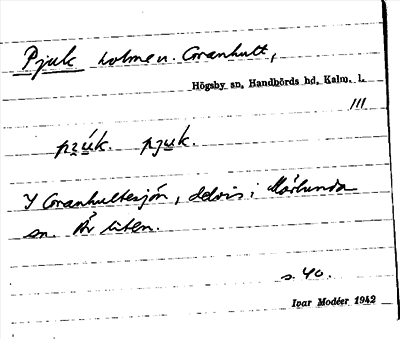 Pjuk holmen. Granhult,
Högsby sn, Handbörds hd, Kalm. l.
III
pȷúk. pjuk.
I Granhultesjön, delvis i Mörlunda
sn. Är liten.
s. 40.
Ivar Modéer 1942